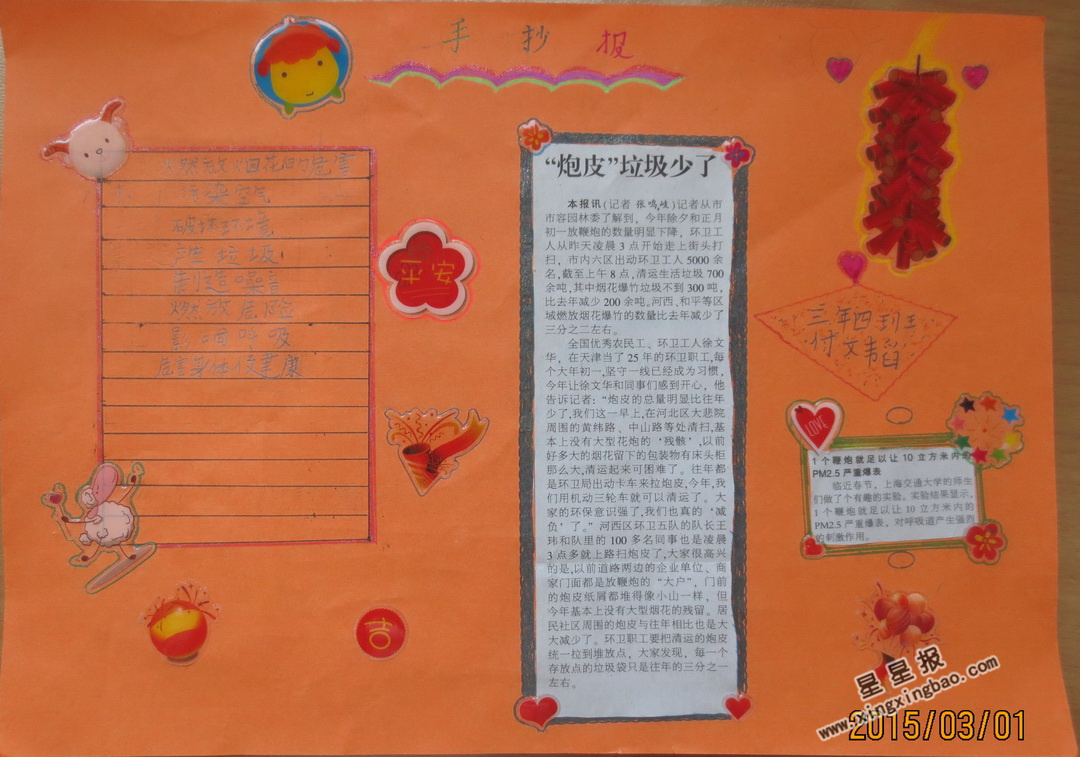 手抄报
燃放烟花的危害
污染空气
破坏环境
垃圾
制造噪音
燃放危险
影响呼吸
危害身体健康
平安
吉
“炮皮”垃圾少了
本报讯(记者 张鸣岐)记者从市
市容园林委了解到，今年除夕和正月
初一放鞭炮的数量明显下降，环卫工
人从昨天凌晨3点开始走上街头打
扫，市内六区出动环卫工人5000余
名，截至上午8点，清运生活垃圾700
余吨，其中烟花爆竹垃圾不到300吨，
比去年减少200余吨。河西、和平等区
域燃放烟花爆竹的数量比去年减少了
三分之二左右。
全国优秀农民工、环卫工人徐文
华，在天津当了25年的环卫职工，每
个大年初一，坚守一线已经成为习惯，
今年让徐文华和同事们感到开心，他
告诉记者：“炮皮的总量明显比往年
少了，我们这一早上，在河北区大悲院
周围的黄纬路、中山路等处清扫，基
本上没有大型花炮的‘残骸’，以前
好多大的烟花留下的包装物有床头柜
那么大，清运起来可困难了。往年都
是环卫局出动卡车来拉炮皮，今年，我
们用机动三轮车就可以清运了。大
家的环保意识强了，我们也真的‘减
负’了。”河西区环卫五队的队长王
玮和队里的100多名同事也是凌晨
3点多就上路扫炮皮了，大家很高兴
的是，以前道路两边的企业单位、商
家门面都是放鞭炮的“大户”，门前
的炮皮纸屑都堆得像小山一样，但
今年基本上没有大型烟花的残留。居
民社区周围的炮皮与往年相比也是大
大减少了。环卫职工要把清运的炮皮
统一拉到堆放点，大家发现，每一个
存放点的垃圾袋只是往年的三分之一
左右。
三年四班
付文韬
LOVE
1个鞭炮就足以让10立方米内的
PM2.5严重爆表
临近春节，上海交通大学的师生
们做了个有趣的实验。实验结果显示，
1个鞭炮就足以让10立方米内的
PM2.5严重爆表，对呼吸道产生强烈
的刺激作用。
星星报
www.xingxingbao.com
2015/03/01